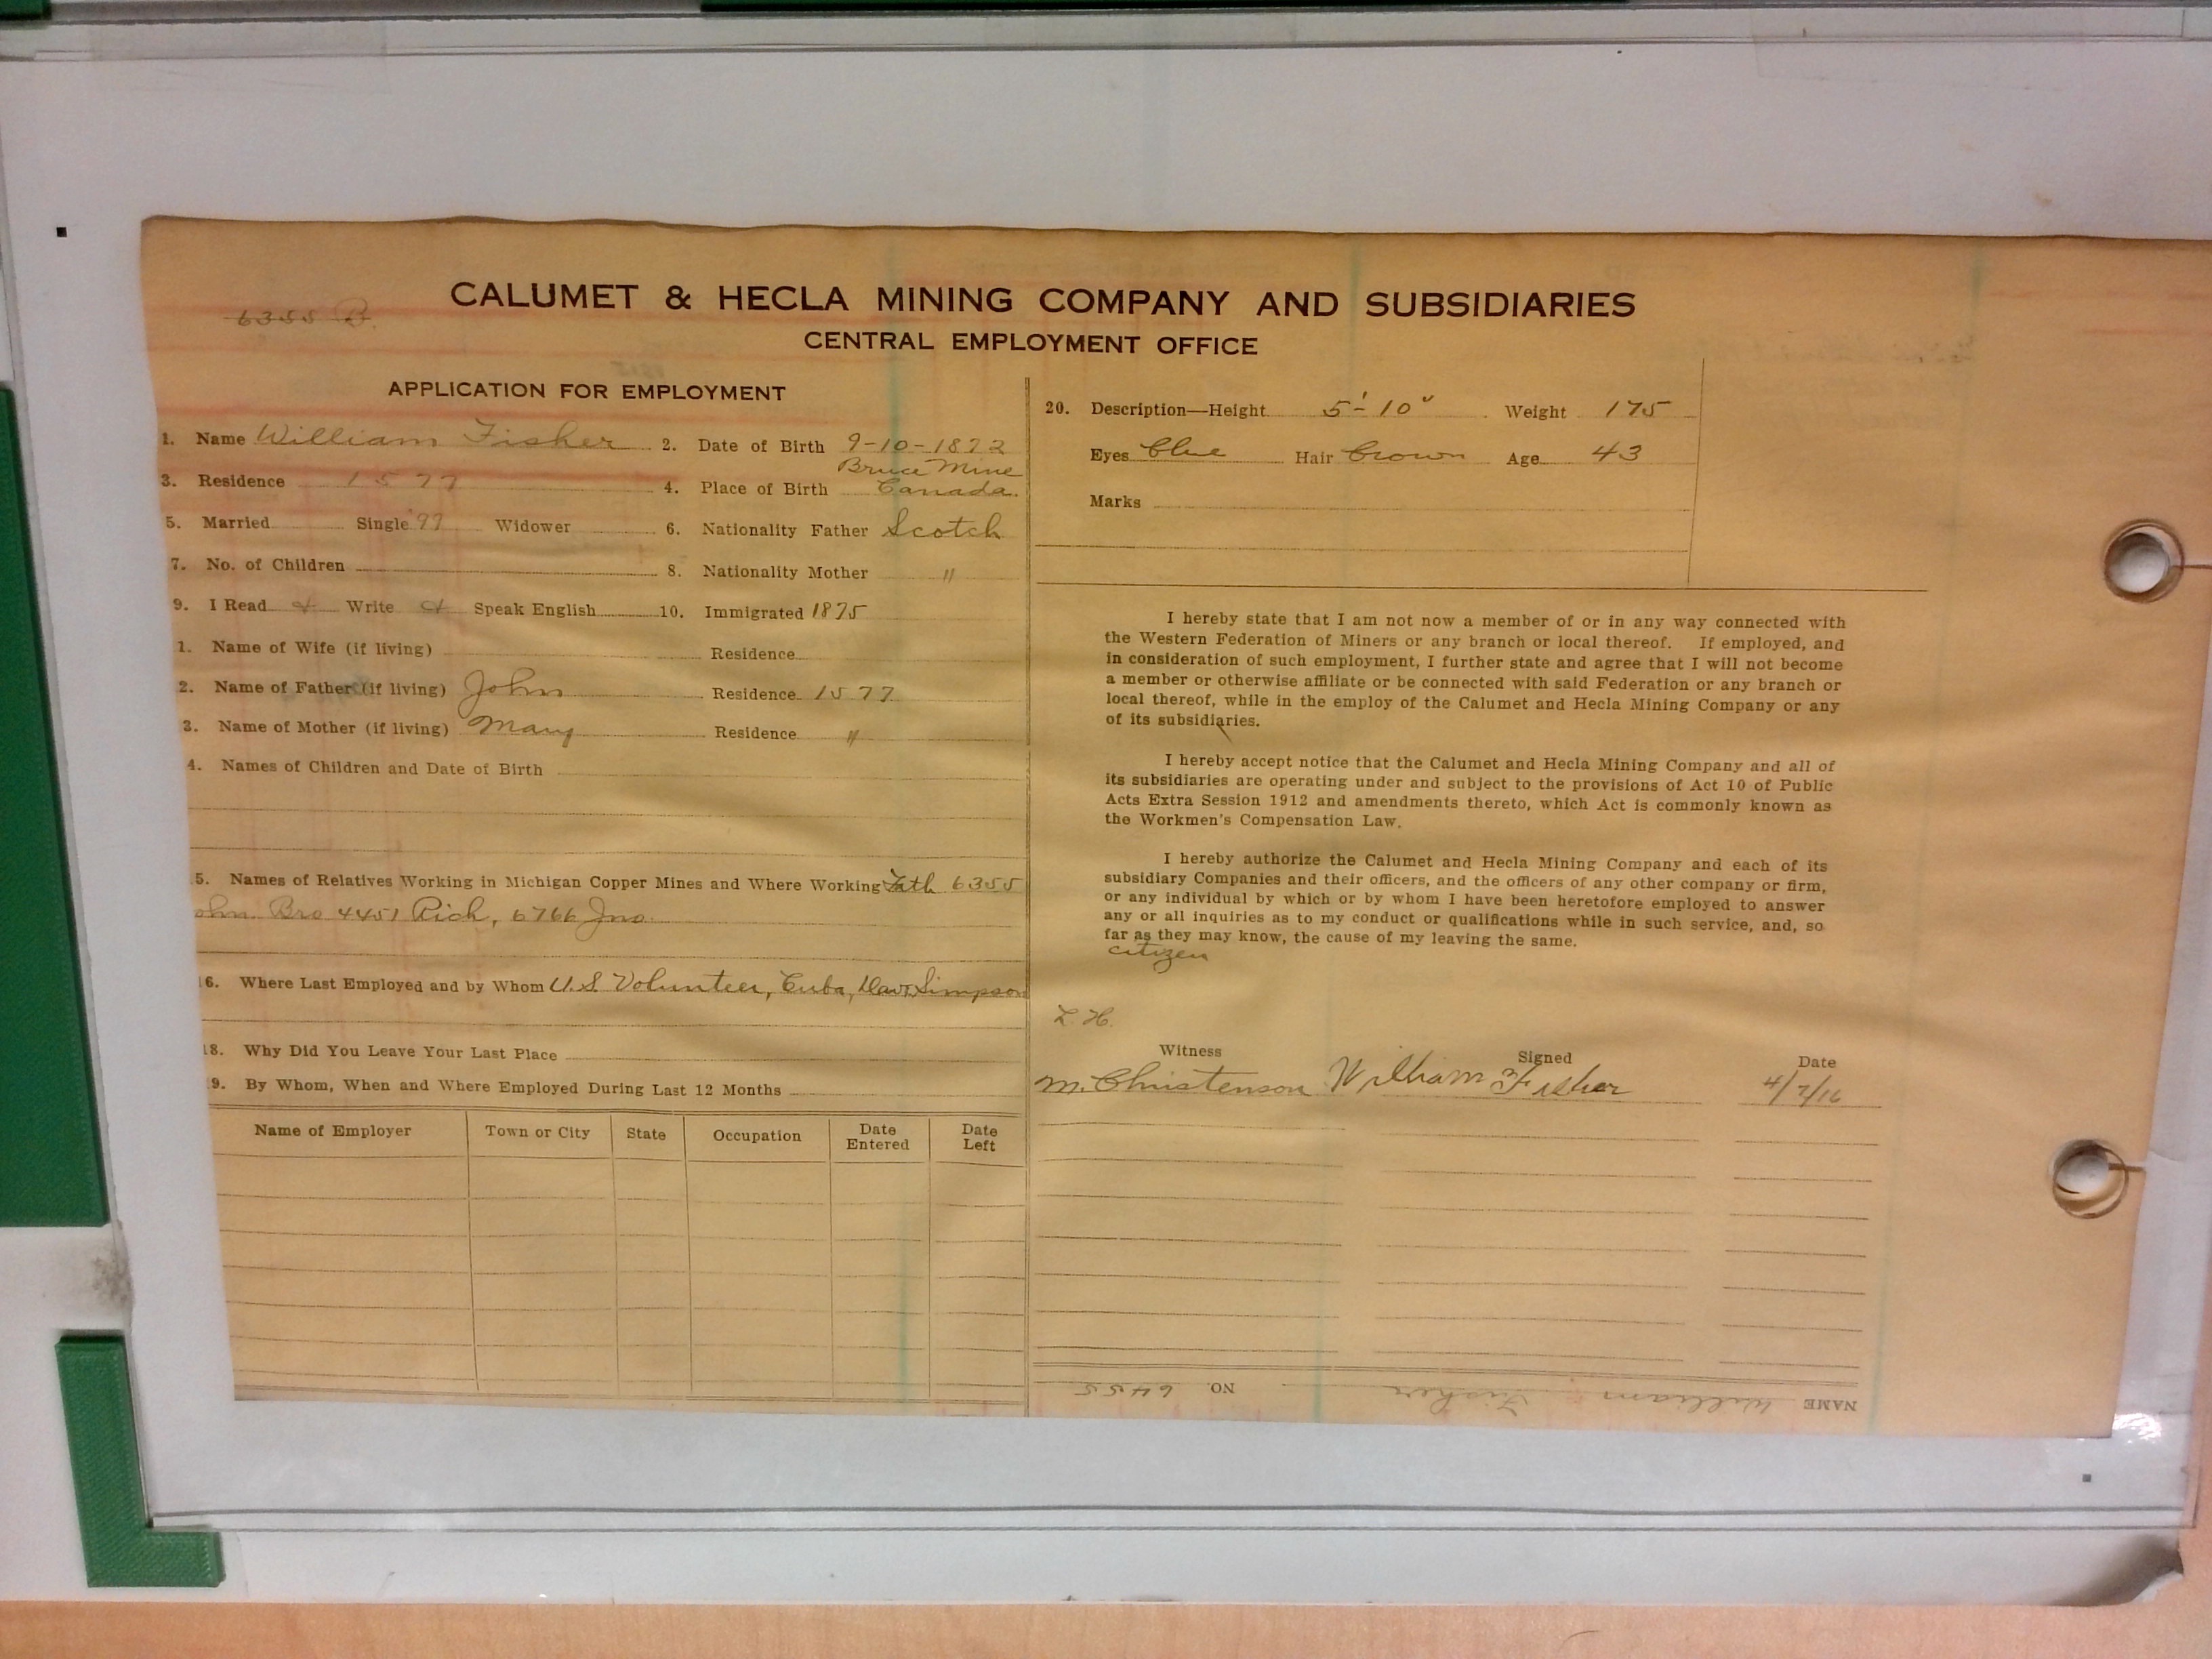 6355 B.
CALUMET & HECLA MINING COMPANY AND SUBSIDIARIES
CENTRAL EMPLOYMENT OFFICE
APPLICATION FOR EMPLOYMENT
1. Name William Fisher 2. Date of Birth 9-10-1872
3. Residence 1577 4. Place of Birth Bruce Mine Canada.
5. Married Single "" Widower 6. Nationality Father Scotch
7. No. of Children 8. Nationality Mother "
9. I Read & Write & Speak English 10. Immigrated 1875
1. Name of Wife (if living) Residence
2. Name of Father (if living) John Residence 1577
3. Name of Mother (if living) Mary Residence "
4. Names of Children and Date of Birth
5. Names of Relatives Working in Michigan Copper Mines and Where Working Fath 6355
ohn. Bro 4451 Rich, 6766 Jno.
16. Where Last Employed and by Whom U.S. Volunteer, Cuba, Simpson
18. Why Did You Leave Your Last Place
9. By Whom, When and Where Employed During Last 12 Months
Name of Employer Town or City State Occupation Date Entered Date Left
20. Description—Height 5'-10" Weight 175
Eyes Blue Hair Brown Age 43
Marks
I hereby state that I am not now a member of or in any way connected with
the Western Federation of Miners or any branch or local thereof. If employed, and
in consideration of such employment, I further state and agree that I will not become
a member or otherwise affiliate or be connected with said Federation or any branch or
local thereof, while in the employ of the Calumet and Hecla Mining Company or any
of its subsidiaries.
I hereby accept notice that the Calumet and Hecla Mining Company and all of
its subsidiaries are operating under and subject to the provisions of Act 10 of Public
Acts Extra Session 1912 and amendments thereto, which Act is commonly known as
the Workmen's Compensation Law.
I hereby authorize the Calumet and Hecla Mining Company and each of its
subsidiary Companies and their officers, and the officers of any other company or firm,
or any individual by which or by whom I have been heretofore employed to answer
any or all inquiries as to my conduct or qualifications while in such service, and, so
far as they may know, the cause of my leaving the same.
citizen
L. H.
Witness Signed Date
M. Christenson William Fisher 4/7/16
NAME William Fisher NO. 6455